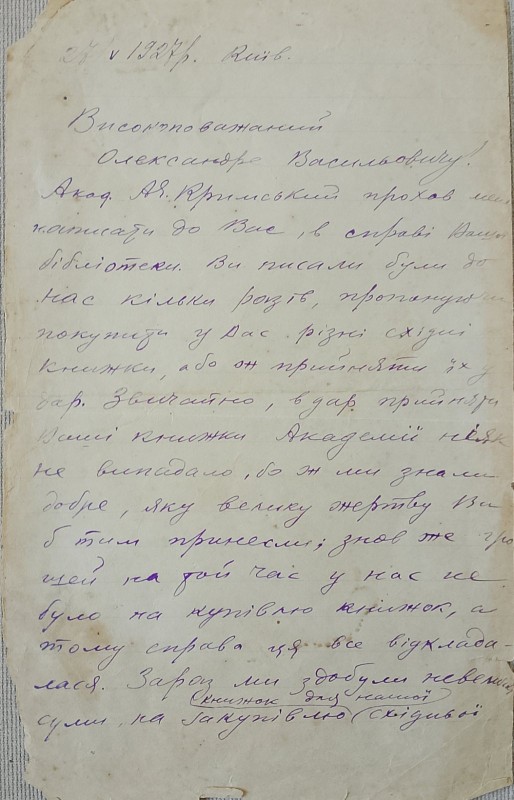 27 V 1927р. Київ.
Високоповажаний
Олександре Васильовичу!
Акад. А.Е. Кримський прохав мене
написати до Вас, в справі Вашої
бібліотеки. Ви писали були до
нас кілька разів, пропонуючи
покупити у Вас різні східні
книжки, або ж прийняти їх у
дар. Звичайно, в дар прийняти
Ваші книжки Академії ніяк
не випадало, бо ж ми знали
добре, яку велику жертву Ви
б тим принесли; знов же гро
шей на той час у нас не
було на купівлю книжок, а
тому справа ця все відклада-
лася. Зараз ми здобули невеличку
книжок для нашої
суму, на закупівлю східньої